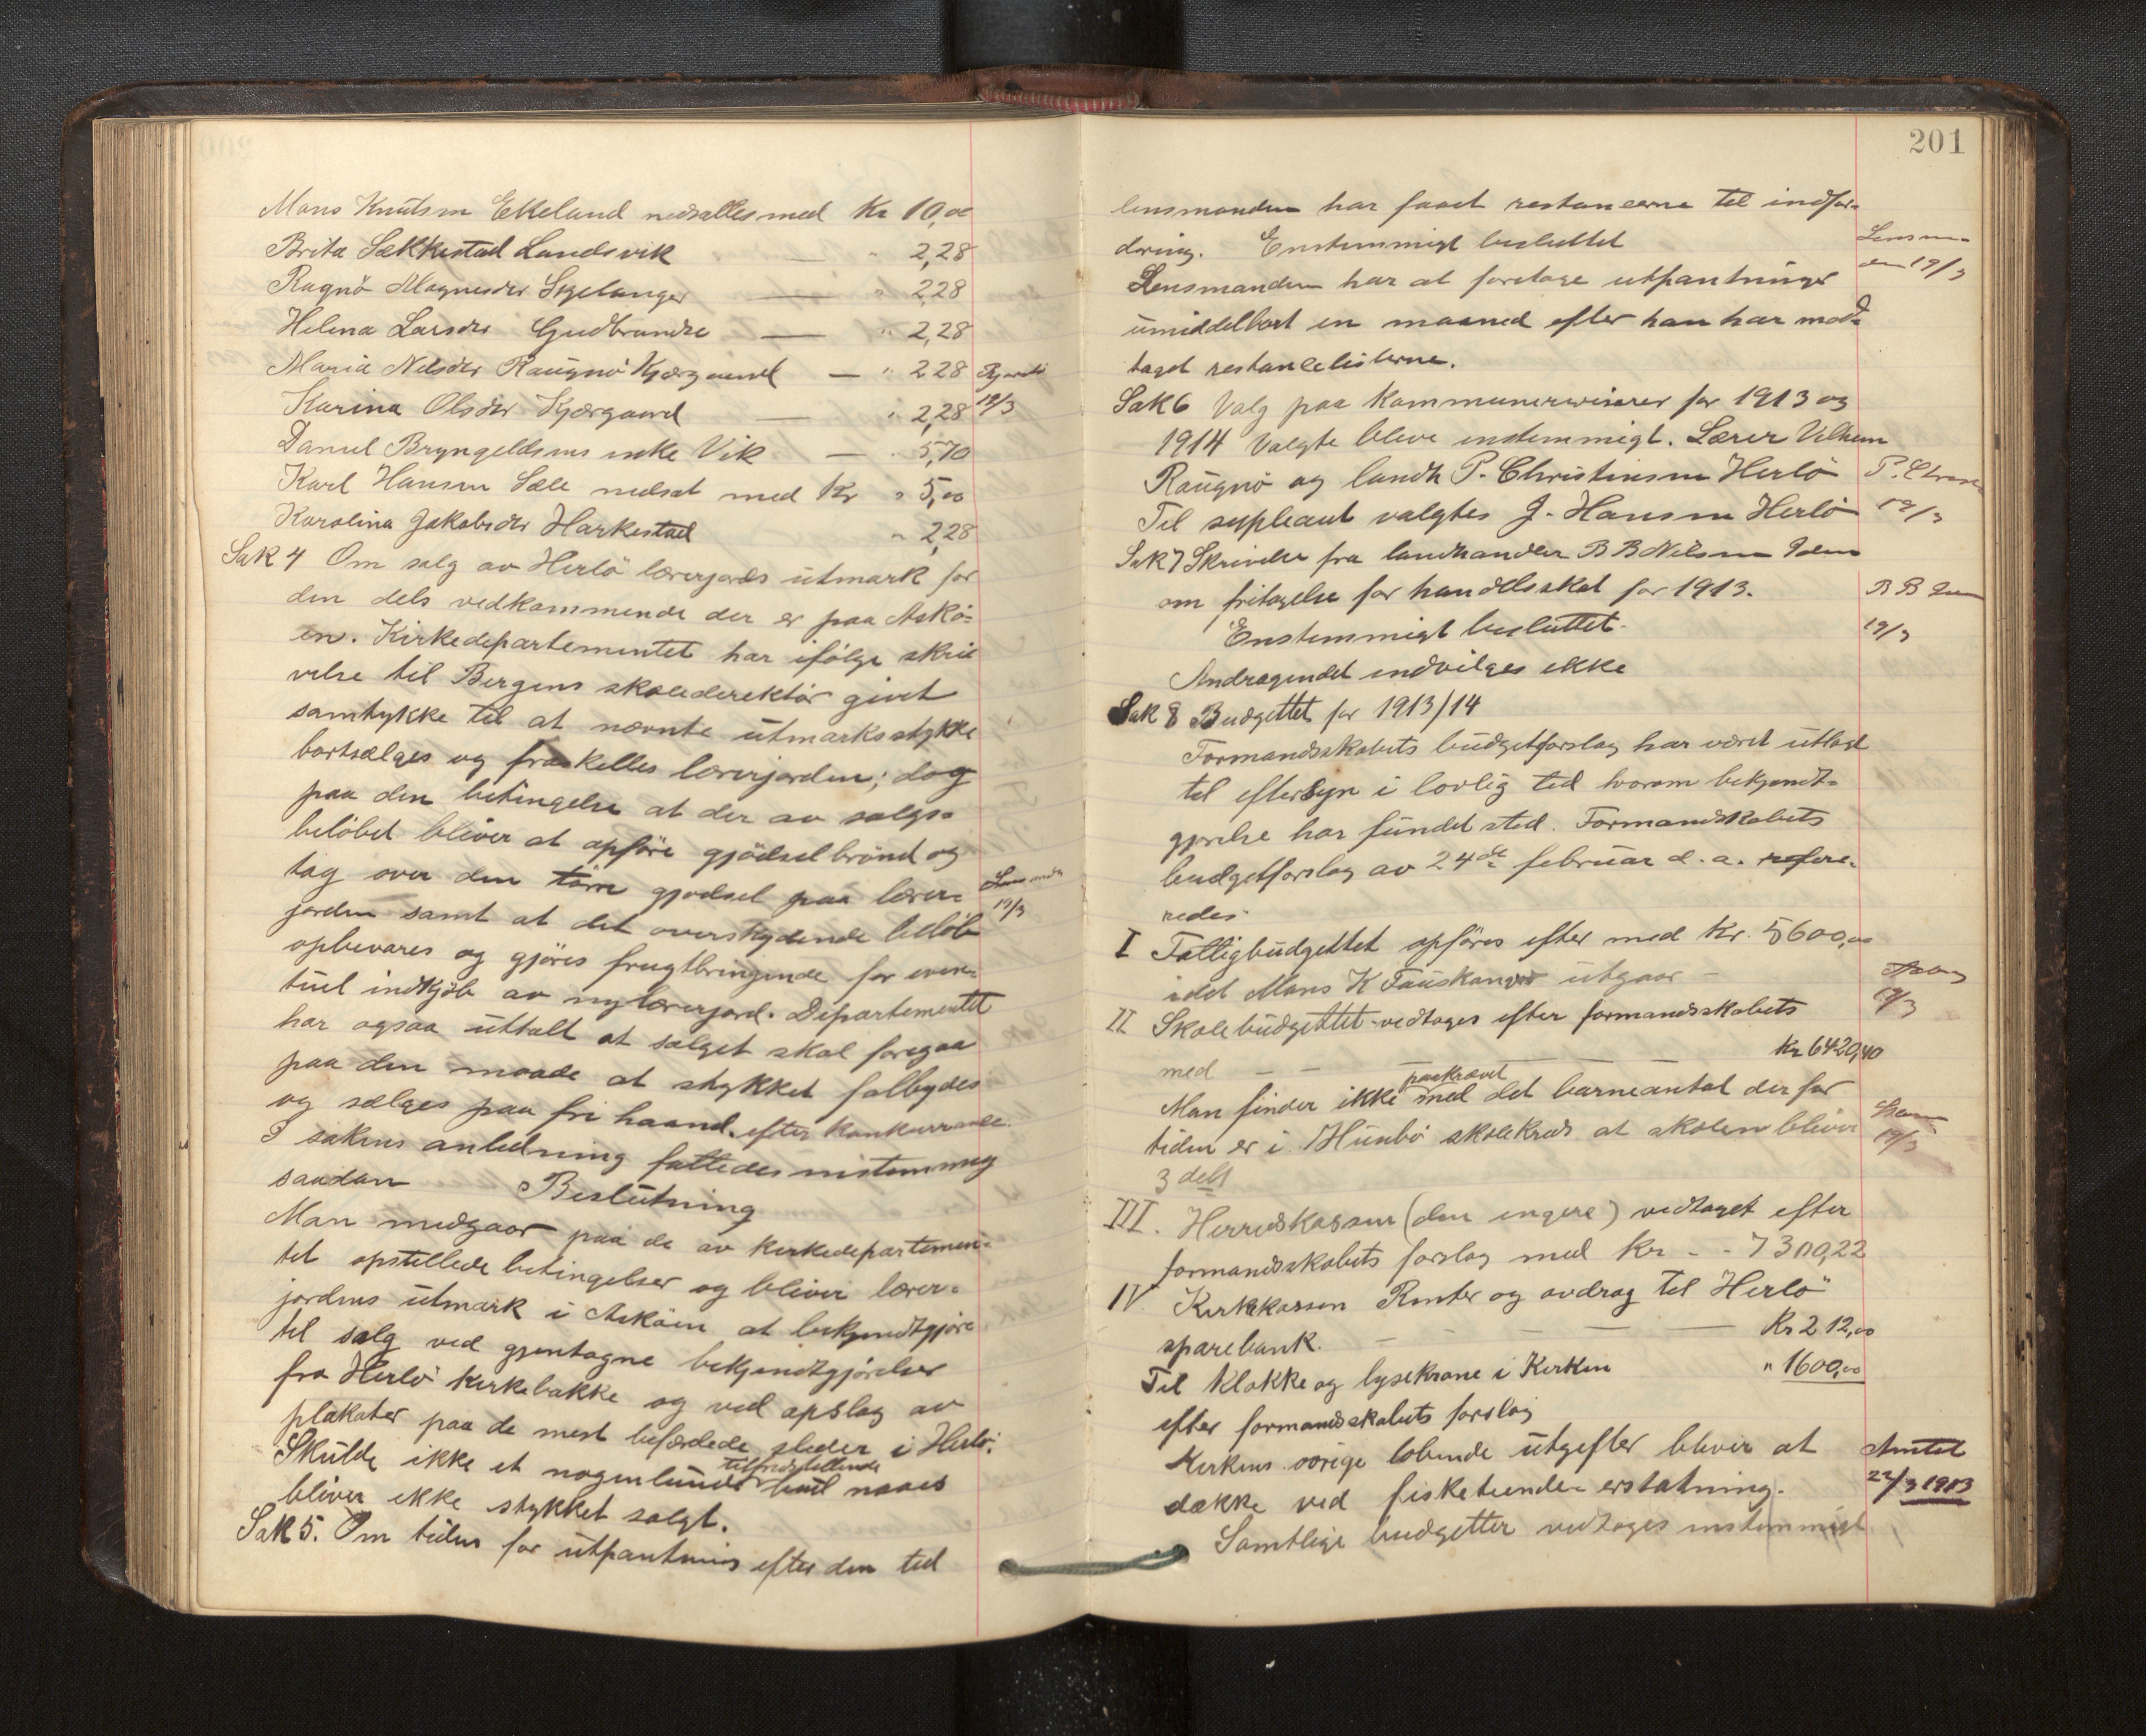 Mons Knutsen Ekeland nedsattes med Kr 10,00
Brita Sækkestad Landsvik — " 2,28
Ragnö Magnesdtr Skjelanger — " 2,28
Helena Larsdtr Gudbrandsö — " 2,28
Maria Nelsdtr Raugnö Kjærgaard — " 2,28
Karina Olsdtr Kjærgaard — " 2,28
19/3
Daniel Bryngeldsens enke Vik — " 5,70
Karl Hansen Sæle nedsat med Kr " 5,00
Karolina Jakobsdtr Harkestad " 2,28
Sak 4 Om salg av Herlö lærerjords utmark for
den dels vedkommende der er paa Askö-
en. Kirkedepartementet har ifölge skri
velse til Bergens skoledirektör givet
samtykke til at nævnte utmarksstykke
bortsælges og fraskilles lærerjorden; dog
paa den betingelse at der av salgs-
belöbet bliver at opföre gjödselbrönd og
tag over den törre gjødsel paa lærer-
jorden samt at det overskydende belöb
19/3
opbevares og gjöres frugtbringende for even-
tuel indkjöb av ny lærerjord. Departementet
har ogsaa uttalt at salget skal foregaa
paa den maade at stykket falbydes
og sælges paa fri haand efter konkurranse.
I sakens anledning fattedes enstemmig
saadan Beslutning
Man medgaar paa de av kirkedepartemen-
tet opstillede betingelser og bliver lærer-
jordens utmark i Asköen at bekjendtgjöre
til salg ved gjentagne bekjendtgjörelser
fra Herlö kirkebakke og ved opslag av
plakater paa de mest befærdede steder i Herlö.
Skulde ikke et nogenlunde tilfredsstillende bud naaes
bliver ikke stykket solgt.
Sak 5. Om tiden for utpantning efter den tid
201
lensmanden har faaet restancerne til indfor-
dring. Enstemmigt besluttet
Lensman
den 19/3
Lensmanden har at foretage utpantninger
umiddelbart en maaned efter han har mod-
taget restancelisterne.
Sak 6 Valg paa kommunerevisorer for 1913 og
1914 Valgte bleve enstemmigt. Lærer Vilhem
Raugnö og landh P. Christensen Herlö
Til supleant valgtes J. Hansen Herlö
19/3
Sak 7 Skrivelse fra landhandler B B Nilsen Idem
om fritagelse for handelsskat for 1913.
B B
Enstemmigt besluttet.
19/3
Andragendet indvilges ikke
Sak 8 Budgettet for 1913/14
Formandsskabets budgetforslag har været utlagt
til eftersyn i lovlig tid hvorom bekjendt-
gjørelse har fundet sted. Formandskabets
budgetforslag av 24de februar d.a. refere-
redes.
I Fattigbudgettet opföres efter med Kr. 5600,00
idet Mons K Fauskanger utgaar —
19/3
II Skolebudgettet vedtages efter formandsskabets
med — — — Kr 6420,40
Man finder ikke paakrævet med det barneantal der for
tiden er i Hunbö skolekreds at skolen bliver
19/3
3 delt
III. Herredskassen (den engere) vedtaget efter
formandsskabets forslag med Kr - - 7300,22
IV. Kirkekassen Renter og avdrag til Herlö
sparebank. — — — Kr 212,00
Til klokke og lysekrone i Kirken " 1600,00
efter formandsskabets forslag
Kirkens övrige löbende utgifter bliver at
Amtet
22/3 1913
dække ved fisketiende erstatning.
Samtlige budgetter vedtages enstemmigt